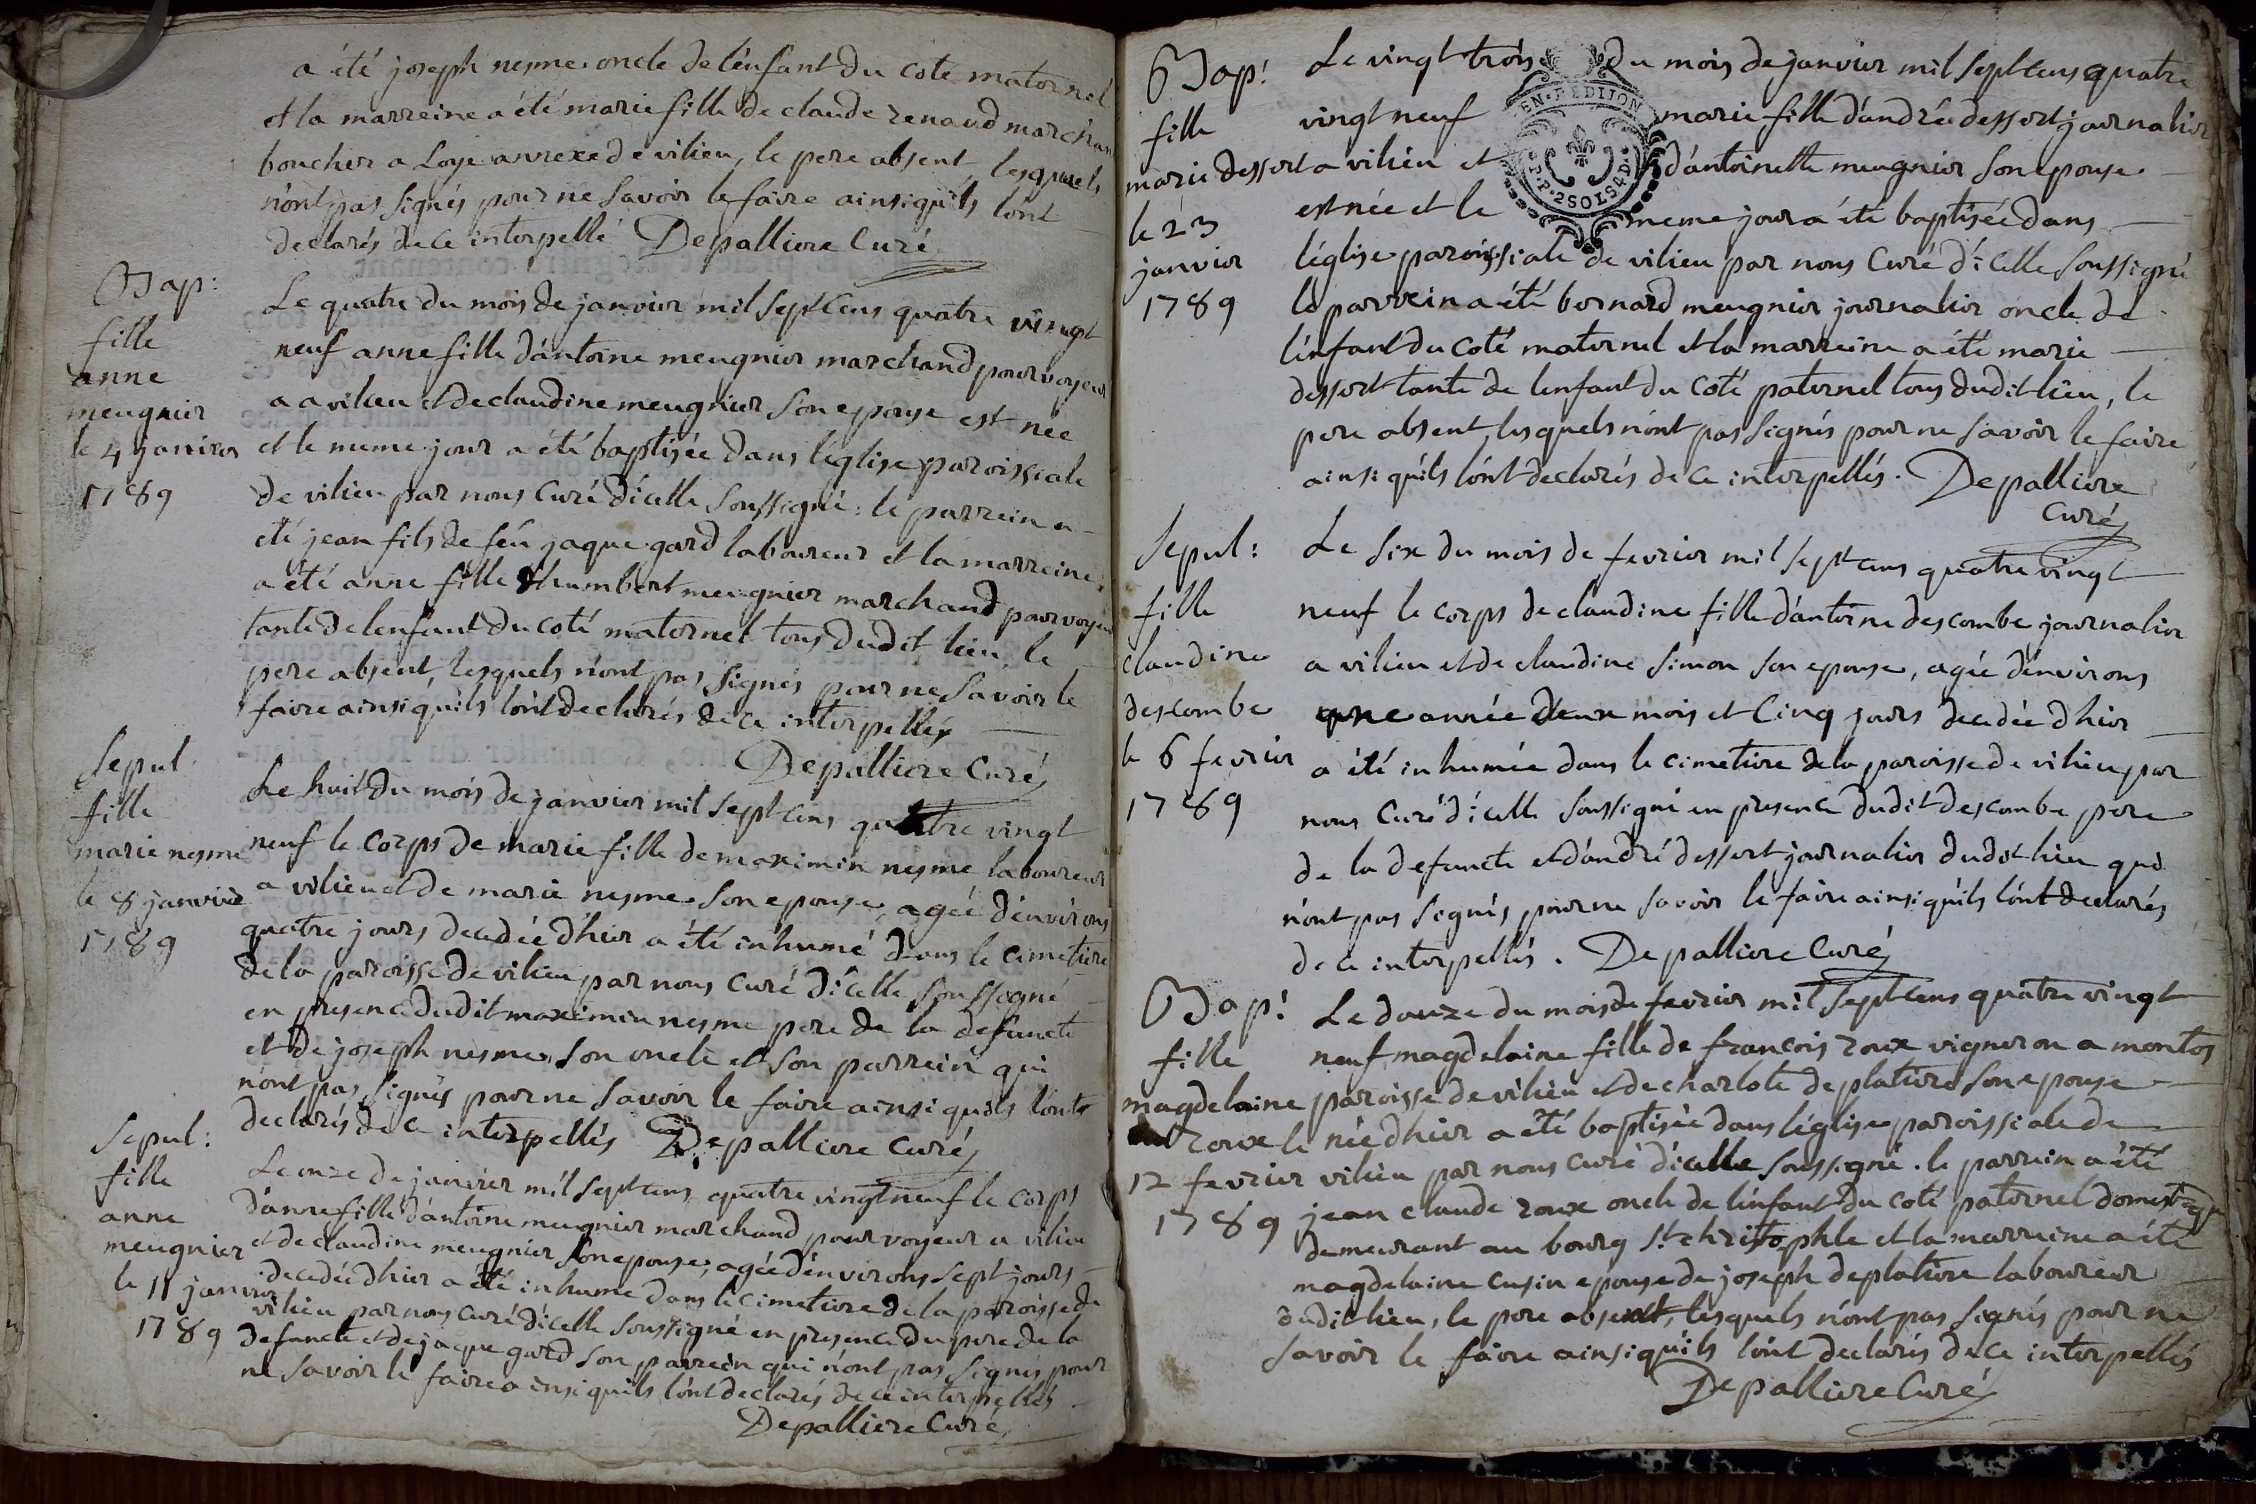 a été joseph nesme oncle de l'enfant du coté maternel
et la marreine a été marie fille de claude renaud marchan
boucher a Loye annexe de vilieu, le pere absent, lesquels
n'ont pas signés pour ne savoir le faire ainsi qu'ils l'ont
declarés de ce interpellé Depalliere Curé
Bap:
fille
anne
meugnier
le 4 janvier
1789
Le quatre du mois de janvier mil sept cens quatre vingt
neuf anne fille d'antoine meugnier marchand pourvoyeur
a a vilieu et de claudine meugnier son epouse est née
et le meme jour a été baptisée dans l'eglise paroissiale
de vilieu par nous Curé d'icelle soussigné: le parrein a
été jean fils de feu jaque gard laboureur et la marreine
a été anne fille d'humbert meugnier marchand pourvoyeur
tante de lenfant du coté maternel tous dudit lieu, le
pere absent, lesquels n'ont pas signés pour ne savoir le
faire ainsi qu'ils l'ont declarés de ce interpellés
Depalliere Curé
Sepul.
fille
marie nesme
le 8 janvier
1789
Le huit du mois de janvier mil sept cens quatre vingt
neuf le corps de marie fille de maximin nesme laboureur
a vilieu et de marie nesme son epouse, agée d'environs
quatre jours decedée d'hier a été inhumé dans le cimetiere
de la paroisse de vilieu par nous curé d'icelle soussigné
en presence dudit maximin nesme pere de la defuncte
et de joseph nesme son oncle et son parrein qui
n'ont pas signés pour ne savoir le faire ainsi qu'ils l'ont
declarés de ce interpellés Depalliere Curé
Sepul:
fille
anne
meugnier
le 11 janvier
1789
Le onze de janvier mil sept cens quatre vingt neuf le corps
d'anne fille d'antoine meugnier marchand pourvoyeur a vilieu
et de claudine meugnier son epouse, agée d'environs sept jours
decedée d'hier a été inhumé dans le cimetiere de la paroisse de
vilieu par nous curé d'icelle soussigné en presence du pere de la
defuncte et de jaque gard son parrein qui n'ont pas signés pour
ne savoir le faire ainsi qu'ils l'ont declarés de ce interpellés
Depalliere Curé
Bap:
fille
marie dessert
le 23
janvier
1789
Le vingt trois du mois de janvier mil sept cens quatre
vingt neuf marie fille d'andré dessert journalier
a vilieu et d'antoinette meugnier son epouse
est née et le meme jour a été baptisée dans
l'église paroissiale de vilieu par nous Curé d'icelle soussigné
le parrein a été bernard meugnier journalier oncle de
l'enfant du coté maternel et la marreine a été marie
dessert tante de lenfant du coté paternel tous dudit lieu, le
pere absent, lesquels n'ont pas signés pour ne savoir le faire
ainsi qu'ils l'ont declarés de ce interpellés. Depalliere
Curé
EN. DE DIJON
2 SOLS 4 D.
Sepul:
fille
claudine
descombe
le 6 fevrier
1789
Le six du mois de fevrier mil sept cens quatre vingt
neuf le corps de claudine fille d'antoine descombe journalier
a vilieu et de claudine simon son epouse, agée d'environs
une année deux mois et cinq jours decedée d'hier
a été inhumée dans le cimetiere de la paroisse de vilieu par
nous Curé d'icelle soussigné en presence dudit descombe pere
de la defuncte et d'andré dessert journalier dudit lieu qui
n'ont pas signés pour ne savoir le faire ainsi qu'ils l'ont declarés
de ce interpellés. Depalliere Curé
Bap:
fille
magdelaine
roux le
12 fevrier
1789
Le douze du mois de fevrier mil sept cens quatre vingt
neuf magdelaine fille de francois roux vigneron a montos
paroisse de vilieu et de charlote deplatiere son epouse
née d'hier a été baptisée dans l'église paroissiale de
vilieu par nous curé d'icelle soussigné. le parrein a été
jean claude roux oncle de l'enfant du coté paternel domestique
demeurant au bourg st christophle et la marreine a été
magdelaine cusin epouse de joseph deplatiere laboureur
dudit lieu, le pere absent, lesquels n'ont pas signés pour ne
savoir le faire ainsi qu'ils l'ont declarés de ce interpellés
Depalliere Curé